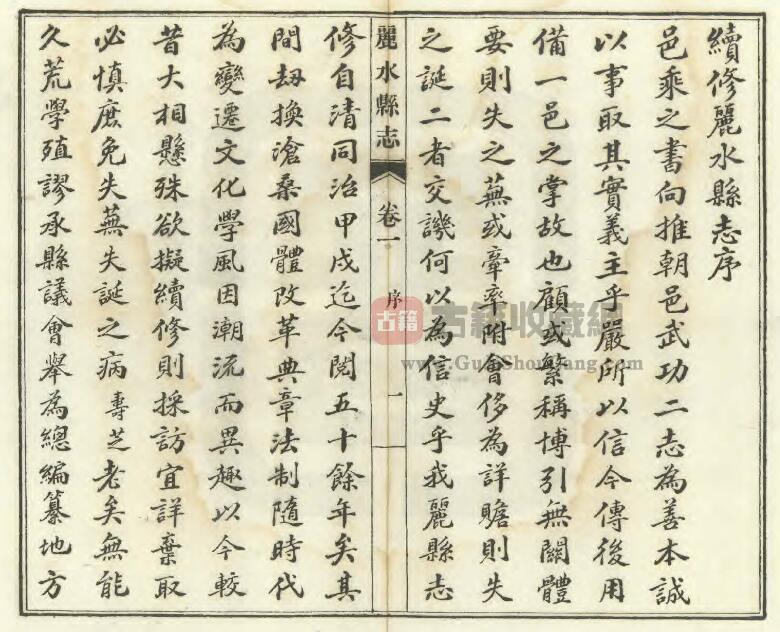 續修麗水縣志序
邑乘之書向推朝邑武功二志為善本誠
以事取其實義主乎嚴所以信今傳後用
備一邑之掌故也顧或繁稱博引無關體
要則失之蕪或牽率附會侈為詳贍則失
之誕二者交譏何以為信史乎我麗縣志
麗水縣志
卷一
序
一
修自清同治甲戌迄今閱五十餘年矣其
間劫換滄桑國體改革典章法制隨時代
為變遷文化學風因潮流而異趣以今較
昔大相懸殊欲擬續修則採訪宜詳棄取
必慎庶免失蕪失誕之病壽芝老矣無能
久荒學殖謬承縣議會舉為總編纂地方
古籍
古籍收藏網
www.GuJiShouCang.com